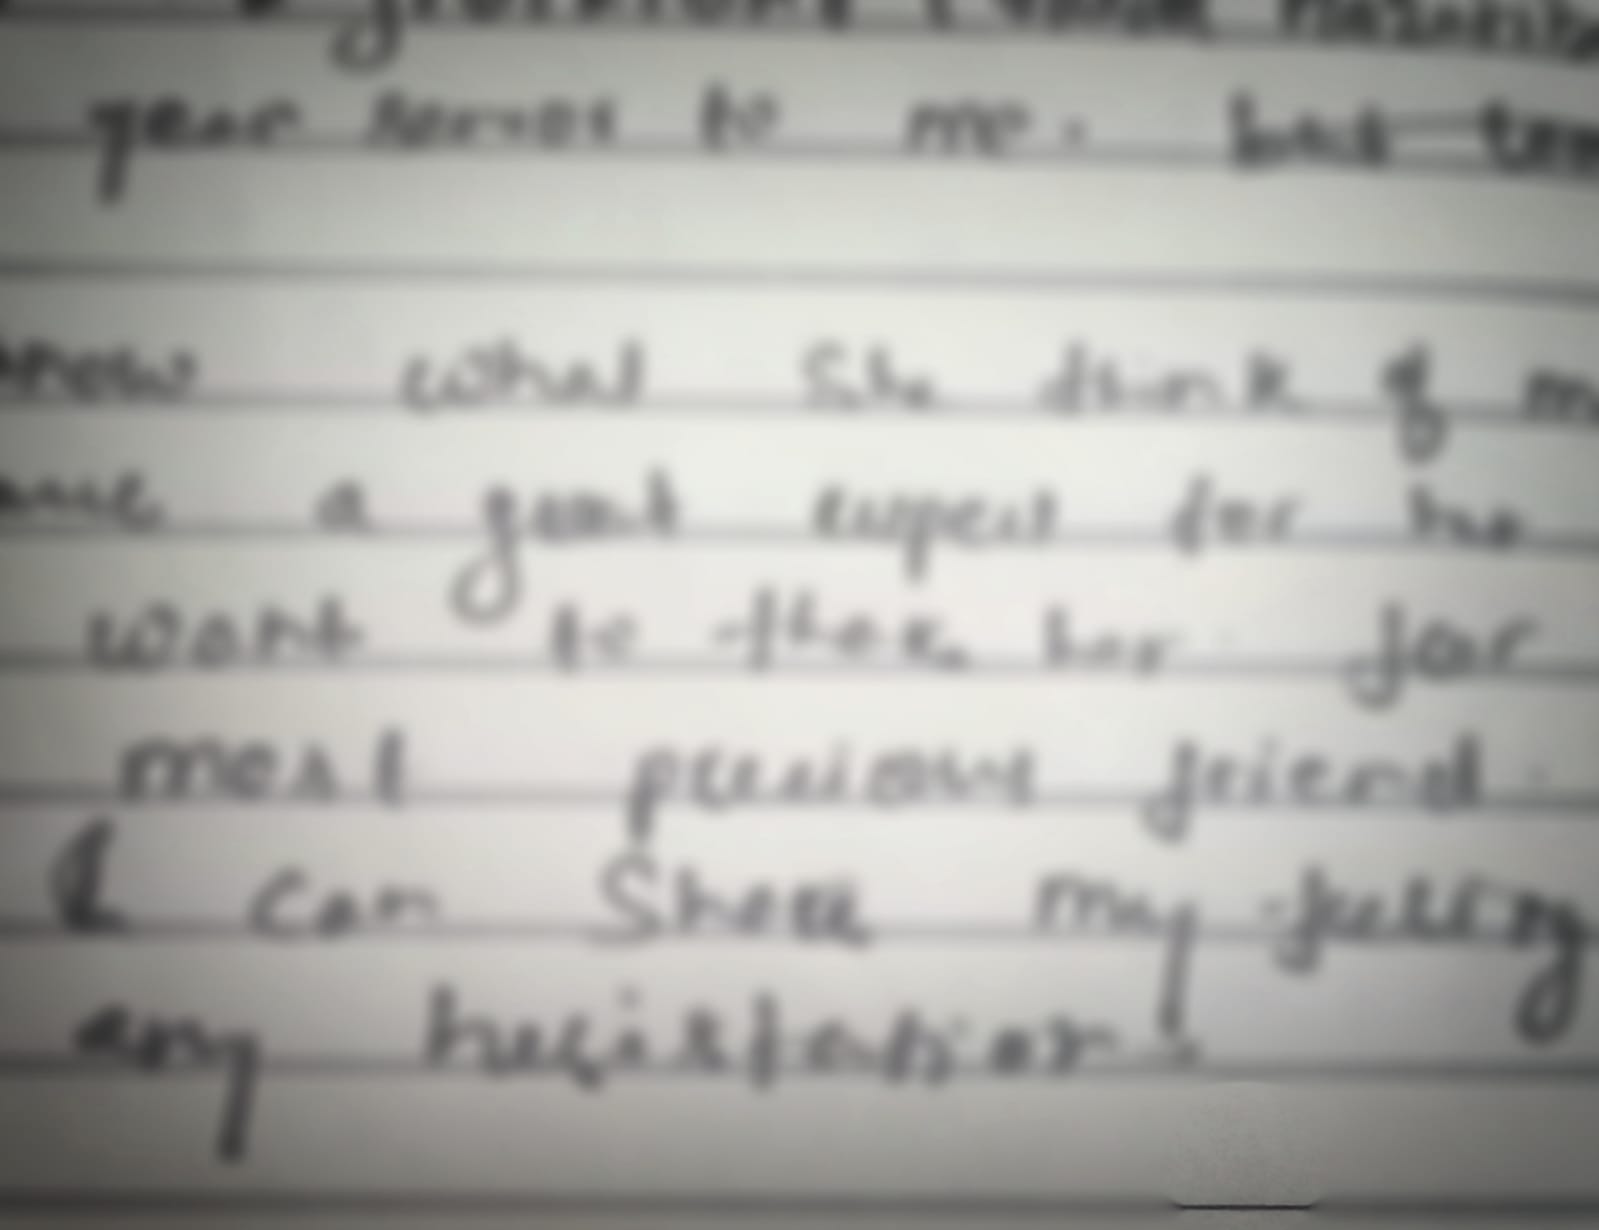 year series to me. but
know what she think of
a great respect for her
want to thank her for
most precious friend.
I can share my feeling
any hesistation.